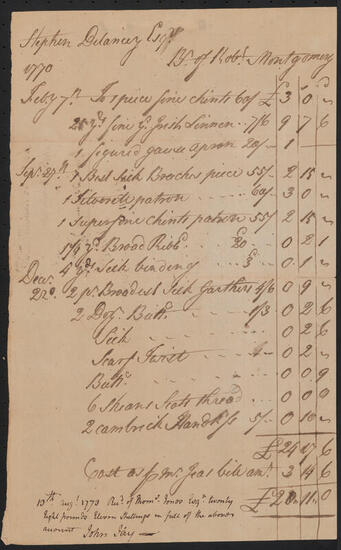 Stephen Delancey Esqr
1770 Bt. of Robt. Montgomery
Feby 7th To 1 piece fine chints 60/ £ 3 0 "
25 yds fine Irish Linnen 7/6 9 7 6
1 figured gauze apron 20/ 1
Sepr. 27th 1 Best Silk Broches piece 55/ 2 15 "
1 patron 60/ 3 0 "
1 Superfine chints patron 55/ 2 15 "
Broad Ribb. 0 2 1
4 yds Silk binding 0 1 "
Decr. 22d. 2 pr. Broadest Silk Garthers 4/6 0 9 "
2 Doz. Butts. 1/3 0 2 6
Silk 0 2 6
Scarf Twist 0 2 "
Butts. 0 0 9
6 Skeans Scots thread 0 0 9
2 cambrick Handkfs 5/ 0 10 "
£ 24 17 6
Cost as pr Mr. bill amt. 3 14 6
£ 28 11 0
10th 1770 Recd. of Thoms. Jones Esqr. twenty
Eight pounds Eleven Shillings in full of the above
account John Jay